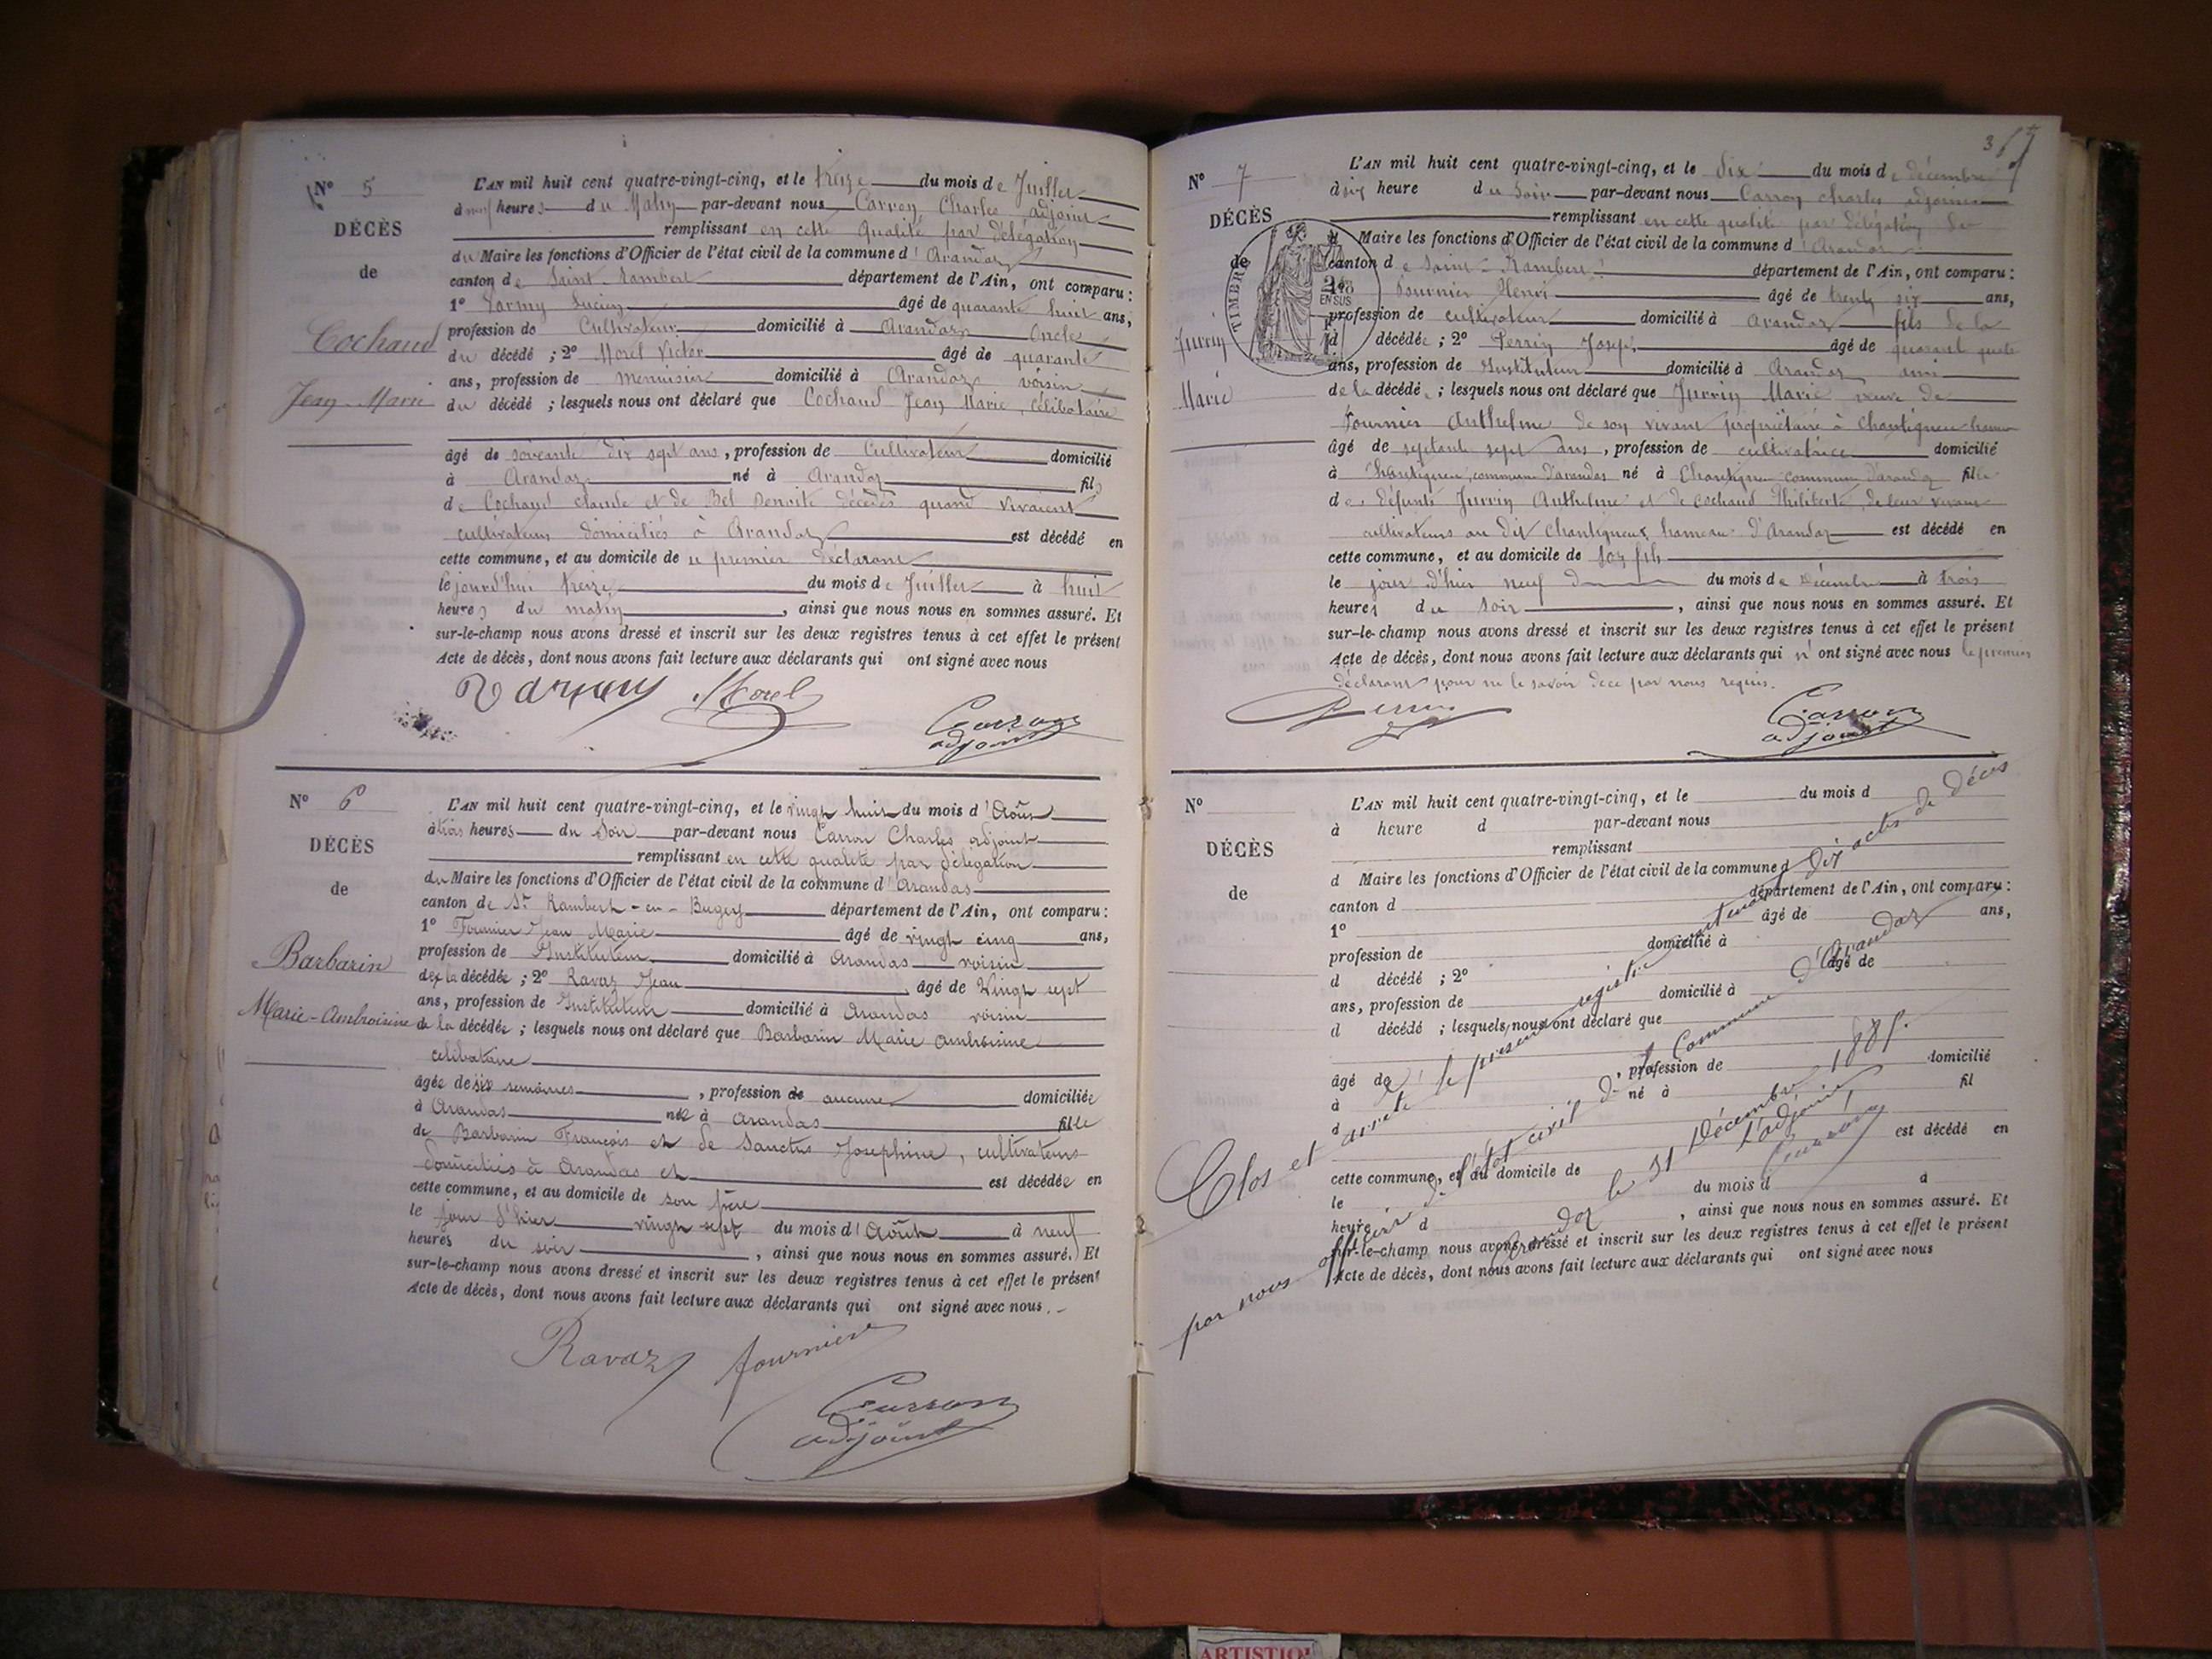 N° 5
DÉCÈS
de
Cochaud
Jean-Marie
L'AN mil huit cent quatre-vingt-cinq, et le treize du mois de Juillet
à neuf heures du Matin par-devant nous Carron Charles adjoint
remplissant en cette qualité par délégation
du Maire les fonctions d'Officier de l'état civil de la commune d'Arandaz
canton de Saint-Rambert département de l'Ain, ont comparu :
1° Varmy Lucien âgé de quarante huit ans,
profession de Cultivateur domicilié à Arandaz Oncle
du décédé ; 2° Morel Victor âgé de quarante
ans, profession de Menuisier domicilié à Arandaz voisin
du décédé ; lesquels nous ont déclaré que Cochaud Jean Marie, célibataire
âgé de soixante dix sept ans, profession de Cultivateur domicilié
à Arandaz né à Arandaz fils
de Cochaud claude et de Bel Benoite décédés quand vivaient
cultivateurs domiciliés à Arandaz est décédé en
cette commune, et au domicile de u premier déclarant
le jourd'hui treize du mois de Juillet à huit
heures du matin, ainsi que nous nous en sommes assuré. Et
sur-le-champ nous avons dressé et inscrit sur les deux registres tenus à cet effet le présent
Acte de décès, dont nous avons fait lecture aux déclarants qui ont signé avec nous
Morel
Carron
adjoint
N° 6
DÉCÈS
de
Barbarin
Marie-Ambroisine
L'AN mil huit cent quatre-vingt-cinq, et le vingt huit du mois d'Août
à trois heures du soir par-devant nous Carron Charles adjoint
remplissant en cette qualité par délégation
du Maire les fonctions d'Officier de l'état civil de la commune d'Arandas
canton de St Rambert-en-Bugey département de l'Ain, ont comparu :
1° Fournier Jean Marie âgé de vingt cinq ans,
profession de Instituteur domicilié à Arandas voisin
de la décédée ; 2° Ravaz Jean âgé de Vingt sept
ans, profession de Instituteur domicilié à Arandas voisin
de la décédée ; lesquels nous ont déclaré que Barbarin Marie ambroisine
célibataire
âgée de six semaines, profession de aucune domiciliée
à Arandas née à Arandas fille
de Barbarin François et de Sanctus Josephine, cultivateurs
domiciliés à Arandas et est décédée en
cette commune, et au domicile de son père
le jour d'hier vingt sept du mois d'Août à neuf
heures du soir, ainsi que nous nous en sommes assuré. Et
sur-le-champ nous avons dressé et inscrit sur les deux registres tenus à cet effet le présent
Acte de décès, dont nous avons fait lecture aux déclarants qui ont signé avec nous.
Ravaz fournier
Carron
adjoint
N° 7
DÉCÈS
de
Jurrin
Marie
TIMBRE
EN SUS
L'AN mil huit cent quatre-vingt-cinq, et le dix du mois de décembre
à six heure du soir par-devant nous Carron charles adjoint
remplissant en cette qualité par délégation du
Maire les fonctions d'Officier de l'état civil de la commune d'Arandaz
canton de Saint-Rambert département de l'Ain, ont comparu :
Fournier Henri âgé de trente six ans,
profession de cultivateur domicilié à Arandaz fils de la
décédée ; 2° Perrin Joseph âgé de quarante quatre
ans, profession de Instituteur domicilié à Arandaz ami
de la décédée ; lesquels nous ont déclaré que Jurrin Marie veuve de
Fournier Anthelme de son vivant propriétaire à Chantigneu hameau
âgé de septante sept ans, profession de cultivatrice domicilié
à Chantigneu, commune d'arandas né à Chantigneu commune d'arandaz fille
de défunts Jurrin Anthelme et de Cochaud Philiberte, de leur vivant
cultivateurs au dit Chantigneux hameau d'Arandaz est décédé en
cette commune, et au domicile de son fils
le jour d'hier neuf du mois de Décembre à trois
heures du soir, ainsi que nous nous en sommes assuré. Et
sur-le-champ nous avons dressé et inscrit sur les deux registres tenus à cet effet le présent
Acte de décès, dont nous avons fait lecture aux déclarants qui n'ont signé avec nous le premier
déclarant pour ne le savoir de ce par nous requis.
Perrin
Carron
adjoint
N°
DÉCÈS
de
L'AN mil huit cent quatre-vingt-cinq, et le du mois d
à heure d par-devant nous
remplissant
d Maire les fonctions d'Officier de l'état civil de la commune d
canton d département de l'Ain, ont comparu :
1° âgé de ans,
profession de domicilié à
d décédé ; 2° âgé de
ans, profession de domicilié à
d décédé ; lesquels nous ont déclaré que
âgé de , profession de domicilié
à né à fil
d est décédé en
cette commune, et au domicile de
le du mois d à
heure d , ainsi que nous nous en sommes assuré. Et
sur-le-champ nous avons dressé et inscrit sur les deux registres tenus à cet effet le présent
Acte de décès, dont nous avons fait lecture aux déclarants qui ont signé avec nous
Clos et arrêté le présent registre contenant actes de décès
par nous officier de l'état civil de la Commune d'Arandaz
Arandaz le 31 Décembre 1885.
L'adjoint
Carron
ARTISTIQ